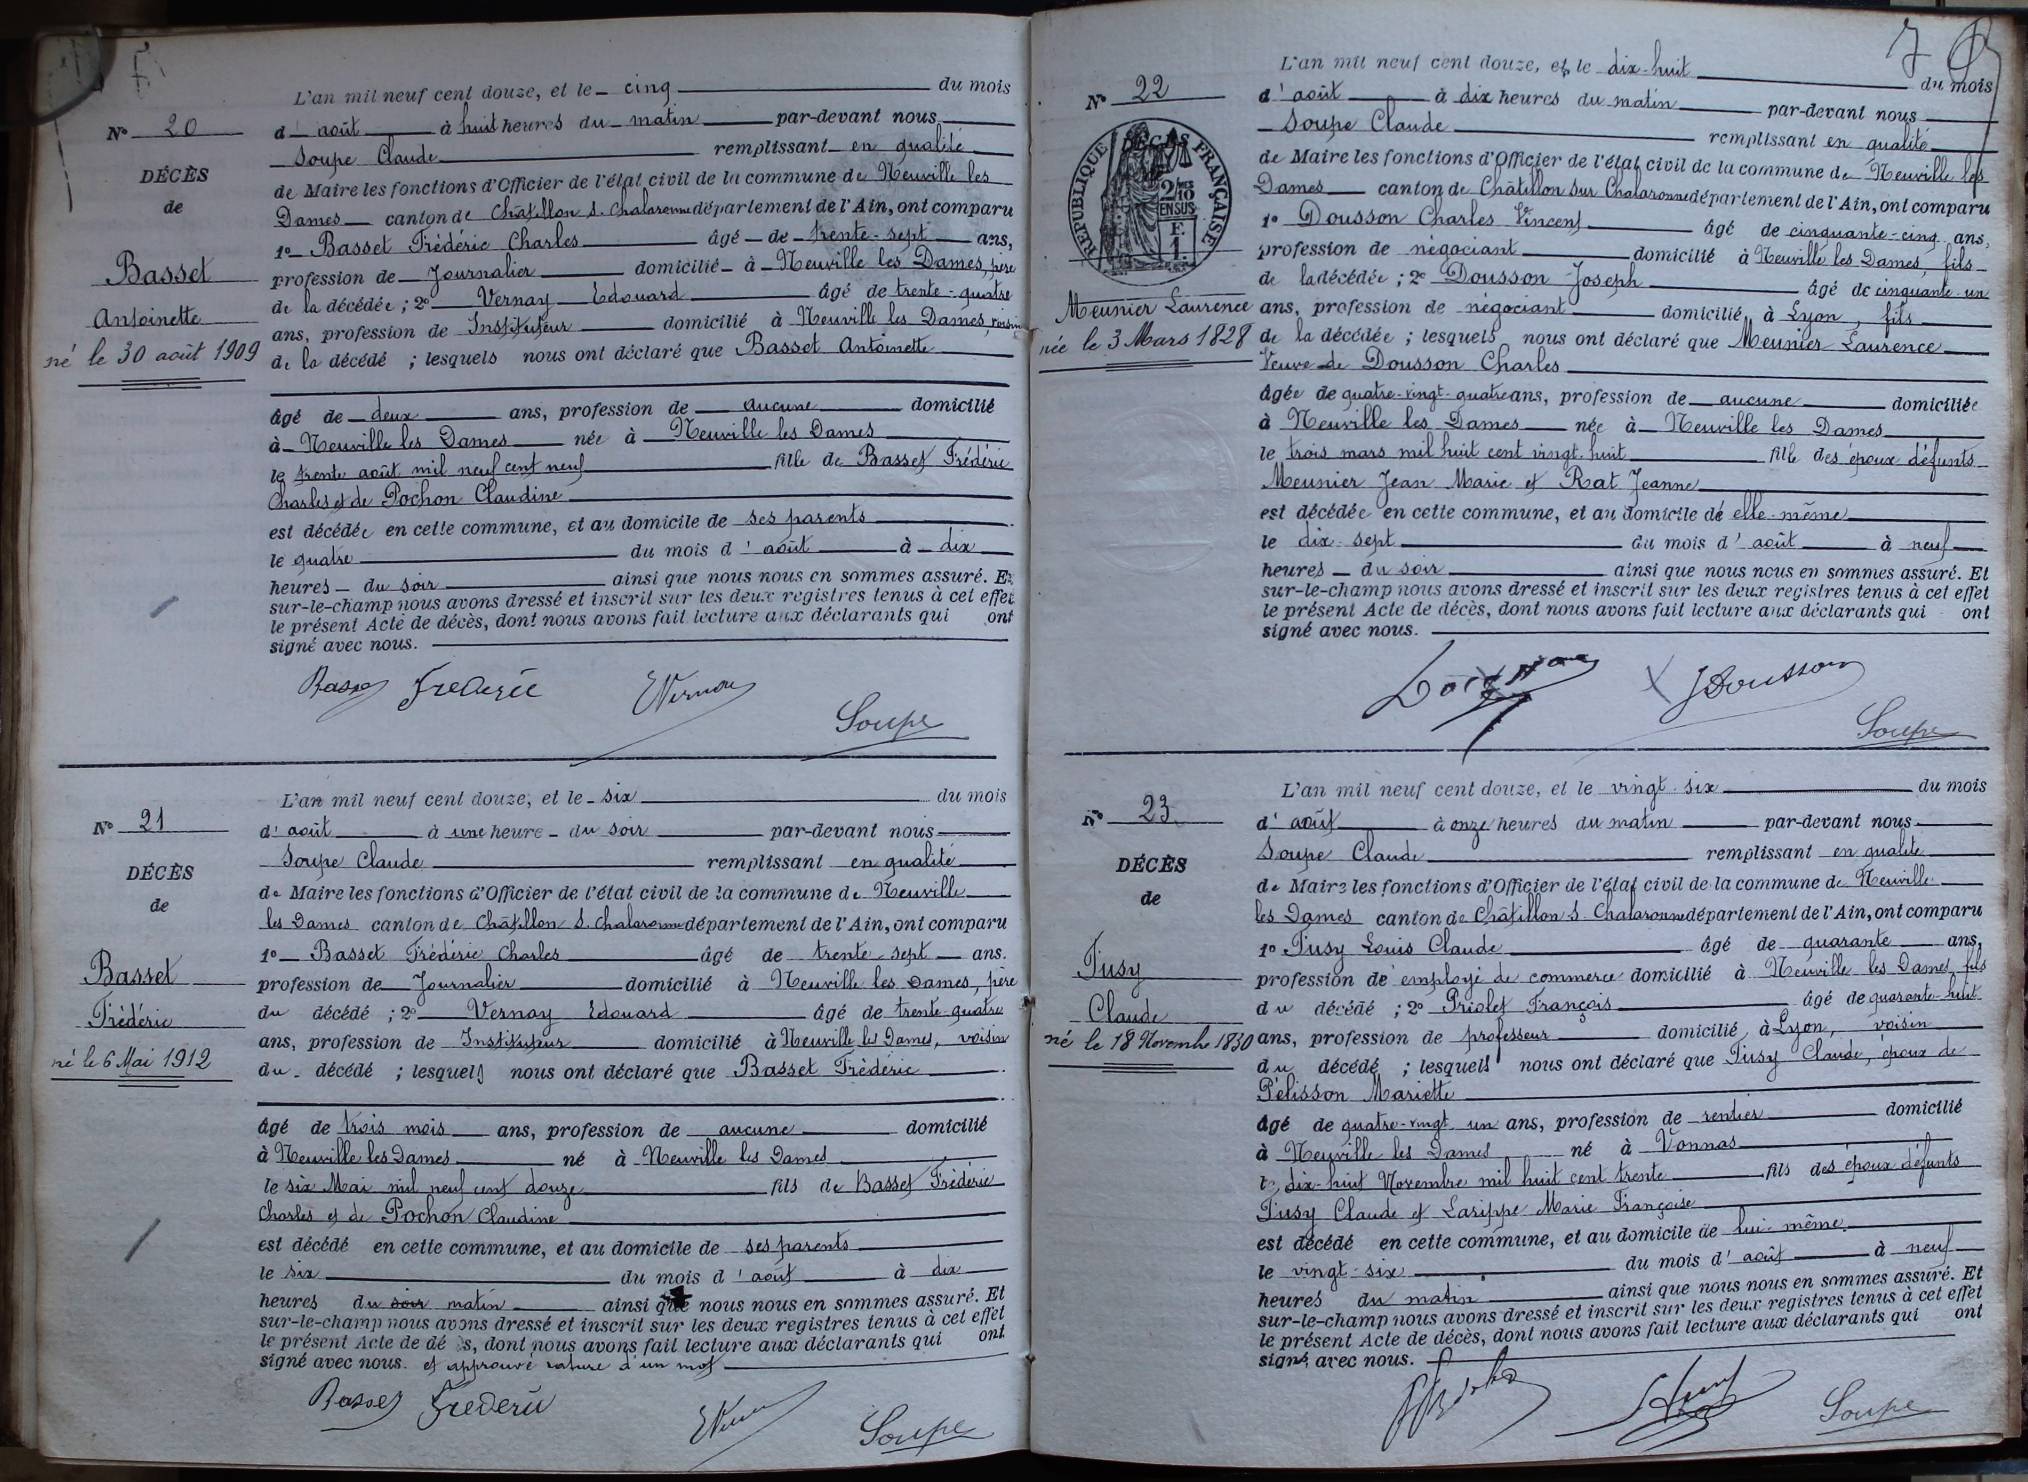 N° 20
DÉCÈS
de
Basset
Antoinette
né le 30 août 1909
L'an mil neuf cent douze, et le cinq du mois
d'août à huit heures du matin par-devant nous
Soupe Claude remplissant en qualité
de Maire les fonctions d'Officier de l'état civil de la commune de Neuville les
Dames canton de Châtillon s. Chalaronne département de l'Ain, ont comparu
1° Basset Frédéric Charles âgé de trente-sept ans,
profession de Journalier domicilié à Neuville les Dames, père
de la décédée ; 2° Vernay Edouard âgé de trente-quatre
ans, profession de Instituteur domicilié à Neuville les Dames, voisin
de la décédé ; lesquels nous ont déclaré que Basset Antoinette
âgé de deux ans, profession de aucune domicilié
à Neuville les Dames née à Neuville les Dames
le trente août mil neuf cent neuf fille de Basset Frédéric
Charles et de Pochon Claudine
est décédée en cette commune, et au domicile de ses parents
le quatre du mois d'août à dix
heures du soir ainsi que nous nous en sommes assuré. Et
sur-le-champ nous avons dressé et inscrit sur les deux registres tenus à cet effet
le présent Acte de décès, dont nous avons fait lecture aux déclarants qui ont
signé avec nous.
Basset Frederic EVernay
Soupe
N° 21
DÉCÈS
de
Basset
Frédéric
né le 6 Mai 1912
L'an mil neuf cent douze, et le six du mois
d'août à une heure du soir par-devant nous
Soupe Claude remplissant en qualité
de Maire les fonctions d'Officier de l'état civil de la commune de Neuville
les Dames canton de Châtillon S. Chalaronne département de l'Ain, ont comparu
1° Basset Frédéric Charles âgé de trente-sept ans.
profession de Journalier domicilié à Neuville les Dames, père
du décédé ; 2° Vernay Edouard âgé de trente-quatre
ans, profession de Instituteur domicilié à Neuville les Dames, voisin
du décédé ; lesquels nous ont déclaré que Basset Frédéric
âgé de trois mois ans, profession de aucune domicilié
à Neuville les Dames né à Neuville les Dames
le six Mai mil neuf cent douze fils de Basset Frédéric
Charles et de Pochon Claudine
est décédé en cette commune, et au domicile de ses parents
le six du mois d'août à dix
heures du soir matin ainsi que nous nous en sommes assuré. Et
sur-le-champ nous avons dressé et inscrit sur les deux registres tenus à cet effet
le présent Acte de dé s, dont nous avons fait lecture aux déclarants qui ont
signé avec nous. et approuvé rature d'un mot
Basset Frederic
Soupe
7
N° 22
DÉCÈS
RÉPUBLIQUE FRANÇAISE
2/10MES
EN SUS
F.
1.
Meunier Laurence
née le 3 Mars 1828
L'an mil neuf cent douze, et le dix-huit du mois
d'août à dix heures du matin par-devant nous
Soupe Claude remplissant en qualité
de Maire les fonctions d'Officier de l'état civil de la commune de Neuville les
Dames canton de Châtillon sur Chalaronne département de l'Ain, ont comparu
1° Dousson Charles Vincent âgé de cinquante-cinq ans,
profession de négociant domicilié à Neuville les Dames, fils
de la décédée ; 2° Dousson Joseph âgé de cinquante-un
ans, profession de négociant domicilié à Lyon, fils
de la décédée ; lesquels nous ont déclaré que Meunier Laurence
Veuve de Dousson Charles
âgée de quatre-vingt-quatre ans, profession de aucune domiciliée
à Neuville les Dames née à Neuville les Dames
le trois mars mil huit cent vingt-huit fille des époux défunts
Meunier Jean Marie et Rat Jeanne
est décédée en cette commune, et au domicile de elle-même
le dix-sept du mois d'août à neuf
heures du soir ainsi que nous nous en sommes assuré. Et
sur-le-champ nous avons dressé et inscrit sur les deux registres tenus à cet effet
le présent Acte de décès, dont nous avons fait lecture aux déclarants qui ont
signé avec nous.
JDousson
Soupe
N° 23
DÉCÈS
de
Fusy
Claude
né le 18 Novembre 1830
L'an mil neuf cent douze, et le vingt-six du mois
d'août à onze heures du matin par-devant nous
Soupe Claude remplissant en qualité
de Maire les fonctions d'Officier de l'état civil de la commune de Neuville
les Dames canton de Châtillon S. Chalaronne département de l'Ain, ont comparu
1° Fusy Louis Claude âgé de quarante ans,
profession de employé de commerce domicilié à Neuville les Dames, fils
du décédé ; 2° Priolet François âgé de quarante-huit
ans, profession de professeur domicilié à Lyon, voisin
du décédé ; lesquels nous ont déclaré que Fusy Claude, époux de
Pélisson Mariette
âgé de quatre-vingt un ans, profession de rentier domicilié
à Neuville les Dames né à Vonnas
le dix-huit Novembre mil huit cent trente fils des époux défunts
Fusy Claude et Larippe Marie Françoise
est décédé en cette commune, et au domicile de lui-même
le vingt-six du mois d'août à neuf
heures du matin ainsi que nous nous en sommes assuré. Et
sur-le-champ nous avons dressé et inscrit sur les deux registres tenus à cet effet
le présent Acte de décès, dont nous avons fait lecture aux déclarants qui ont
signé avec nous.
Soupe